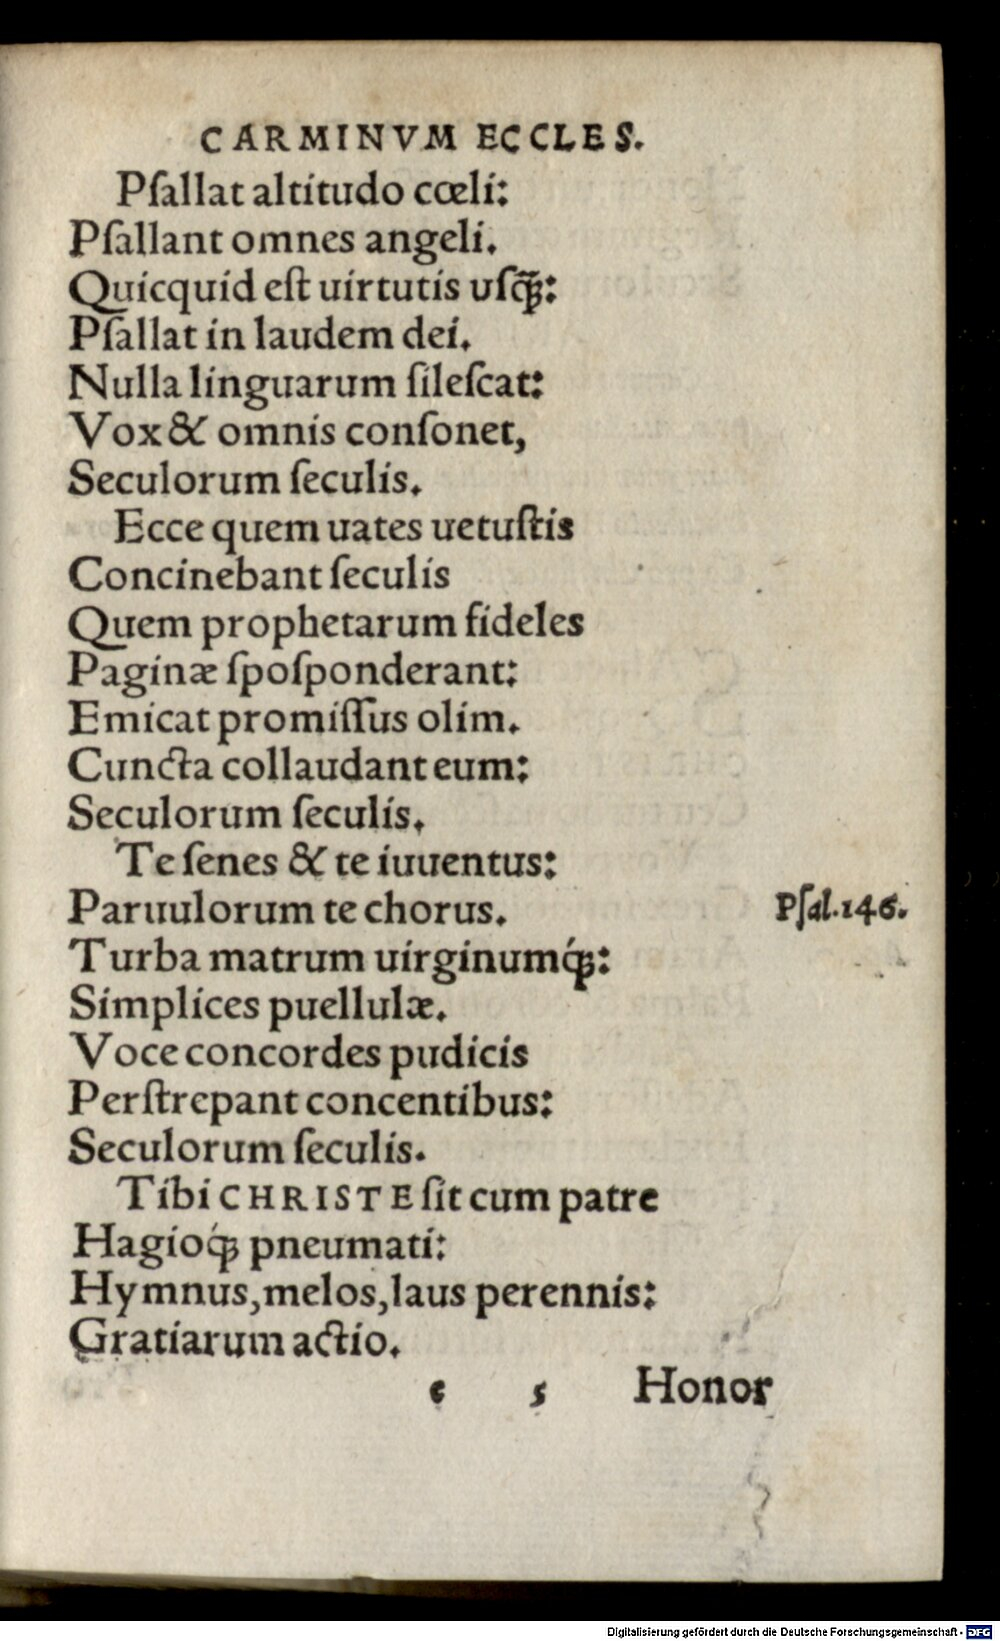 CARMINVM ECCLES.
Pſallat altitudo cœli:
Pſallant omnes angeli.
Quicquid eſt uirtutis uſq̃:
Pſallat in laudem dei.
Nulla linguarum ſileſcat:
Vox & omnis conſonet,
Seculorum ſeculis.
Ecce quem uates uetuſtis
Concinebant ſeculis
Quem prophetarum fideles
Paginæ ſpoſponderant:
Emicat promiſſus olim.
Cuncta collaudant eum:
Seculorum ſeculis.
Te ſenes & te iuuentus:
Paruulorum te chorus.
Pſal.146.
Turba matrum uirginumq́;:
Simplices puellulæ.
Voce concordes pudicis
Perſtrepant concentibus:
Seculorum ſeculis.
Tibi CHRISTE ſit cum patre
Hagioq́; pneumati:
Hymnus, melos, laus perennis:
Gratiarum actio.
e 5 Honor
Digitalisierung gefördert durch die Deutsche Forschungsgemeinschaft - DFG